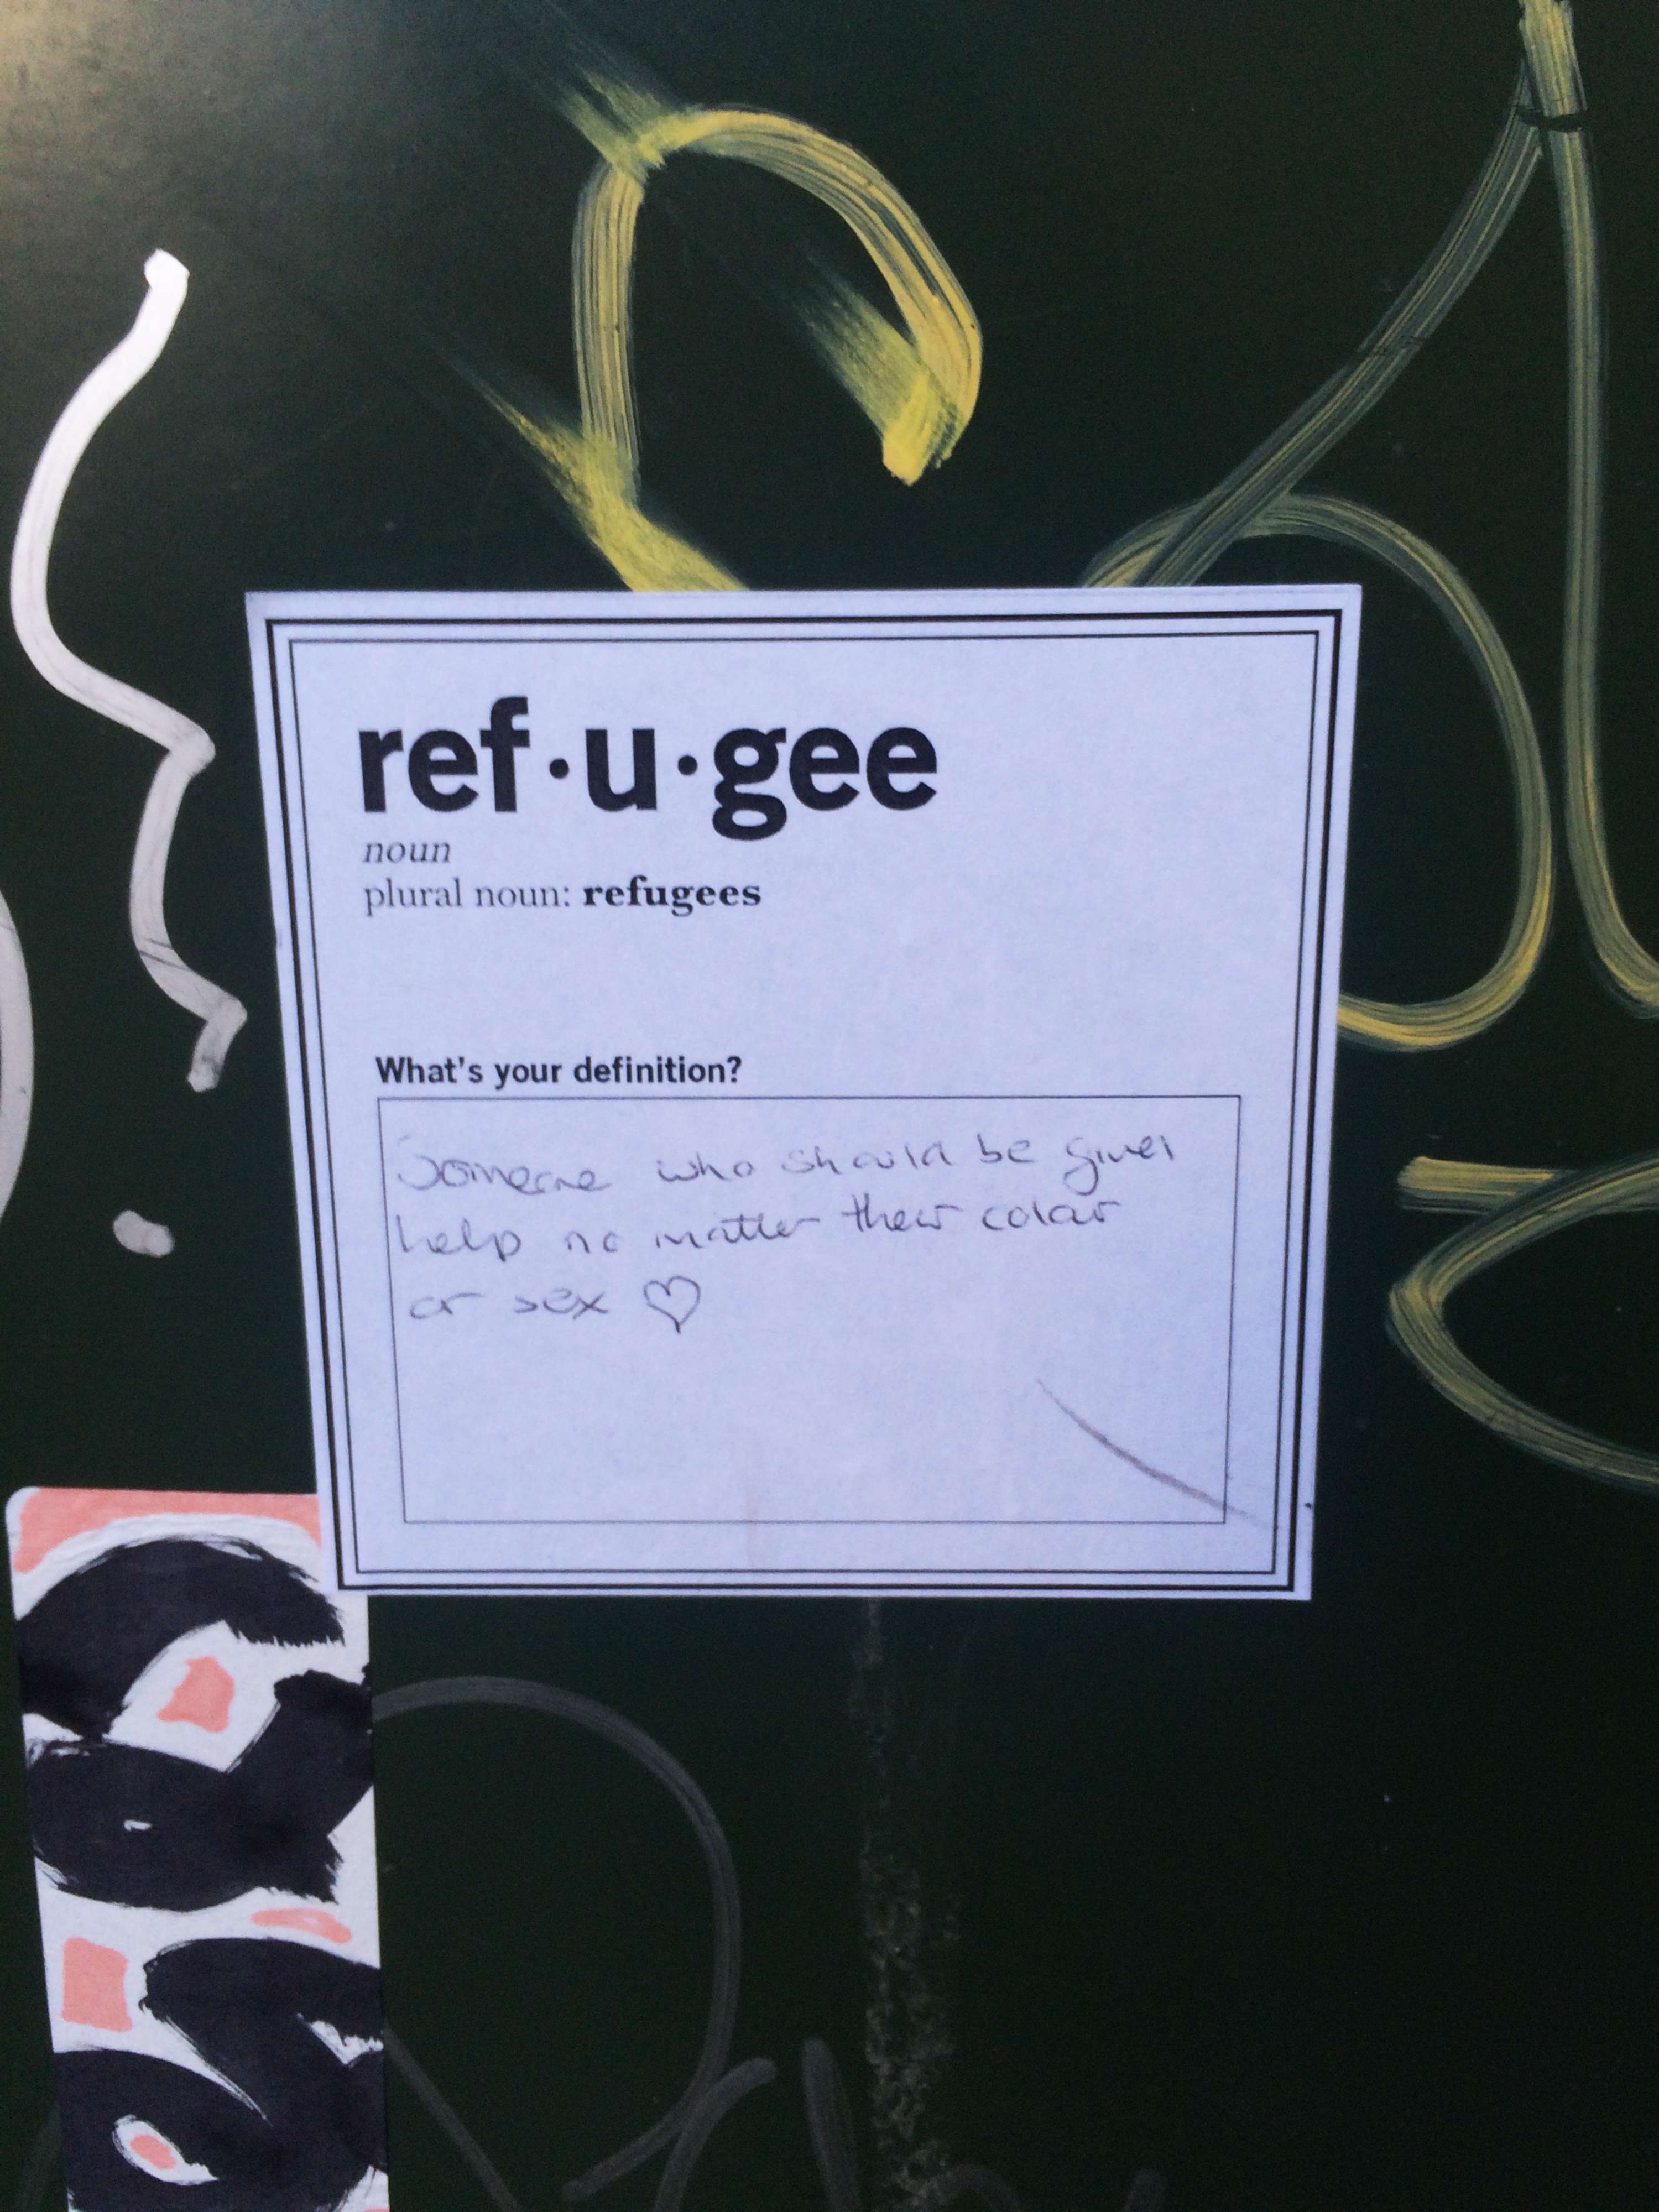 ref·u·gee
noun
plural noun: refugees
What's your definition?
Someone who should be given
help no matter their colour
or sex ♡